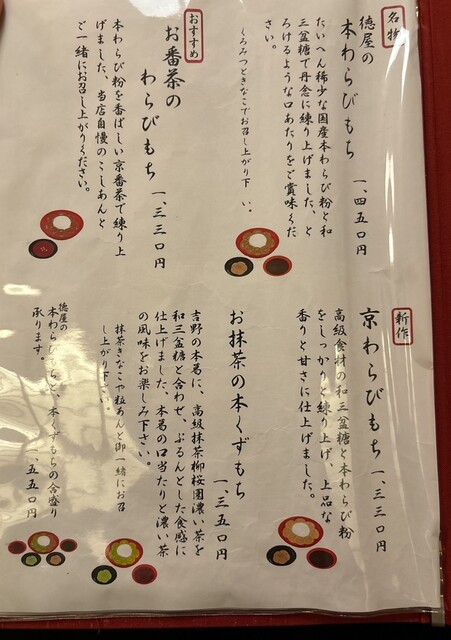 名物
徳屋の
本わらびもち 一、四五〇円
たいへん稀少な国産本わらび粉と和
三盆糖で丹念に練り上げました、と
ろけるような口あたりをご賞味くだ
さい。
くろみつときなこでお召し上がり下 い。
おすすめ
お番茶の
わらびもち 一、三三〇円
本わらび粉を香ばしい京番茶で練り上
げました、当店自慢のこしあんと
ご一緒にお召し上がりください。
新作
京わらびもち 一、三三〇円
高級食材の和三盆糖と本わらび粉
をしっかりと練り上げ、上品な
香りと甘さに仕上げました。
お抹茶の本くずもち 一、三五〇円
吉野の本葛に、高級抹茶柳桜園濃い茶を
和三盆糖と合わせ、ぷるんとした食感に
仕上げました、本葛の口当たりと濃い茶
の風味をお楽しみ下さい。
抹茶きなこや粒あんと御一緒にお召
し上がり下
徳屋の
本わらびもちと、本くずもちの合盛り
承ります。 一、五五〇円